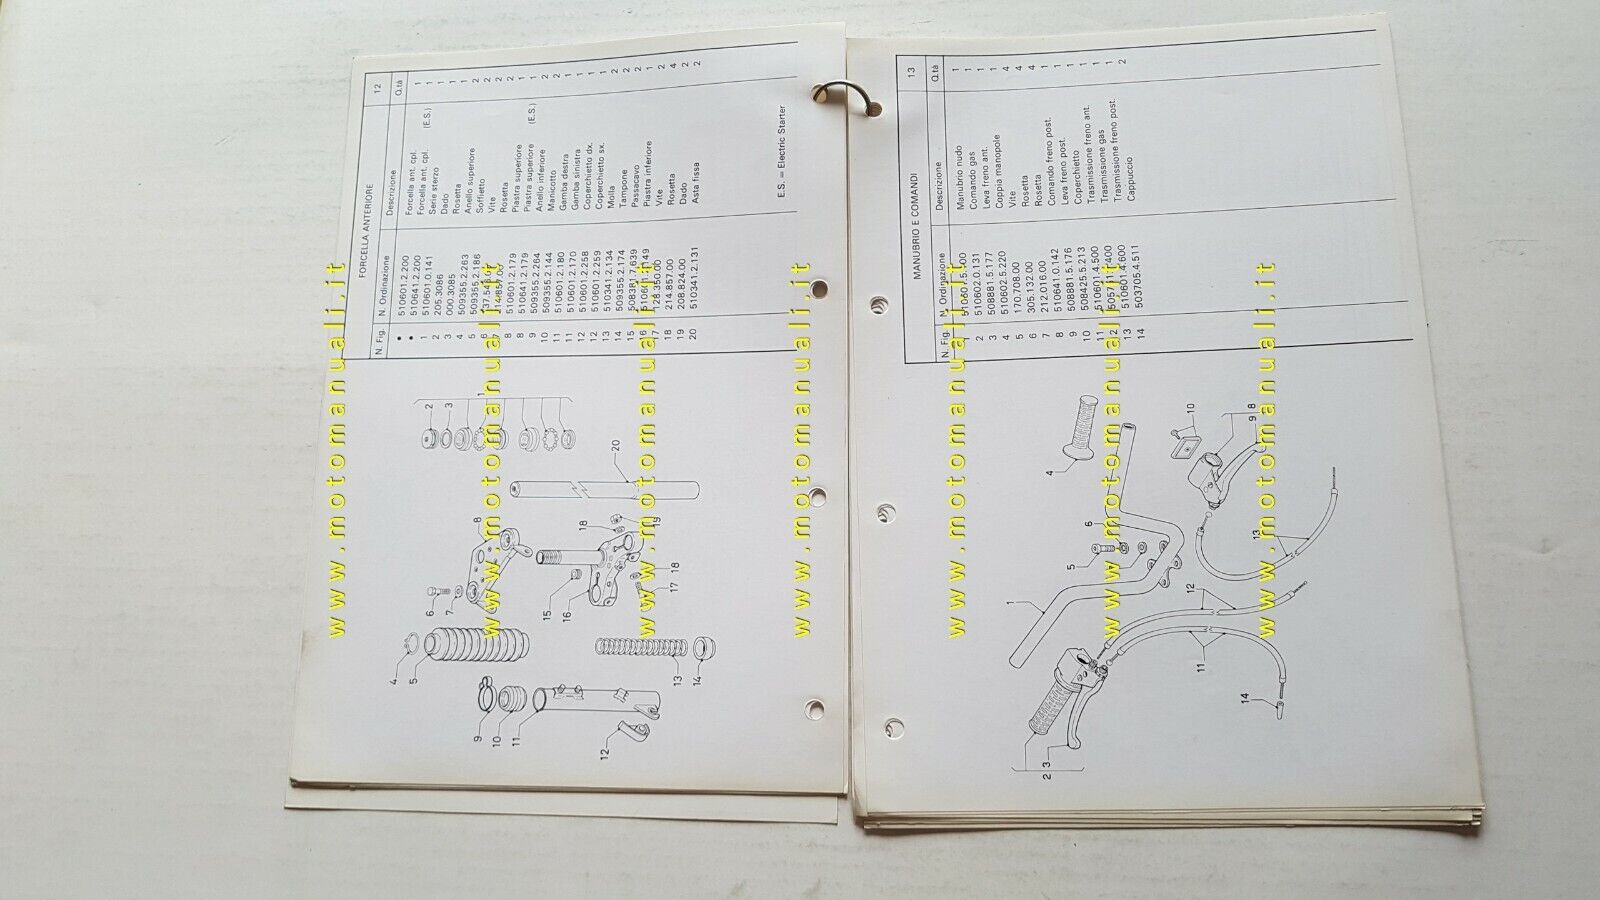 FORCELLA ANTERIORE 12
N. Fig. N. Ordinazione Descrizione Q.tà
• 510601.2.200 Forcella ant. cpl. 1
• 510641.2.200 Forcella ant. cpl. (E.S.) 1
1 510601.0.141 Serie sterzo 1
2 205.3086 Dado 1
3 000.3085 Rosetta 1
4 509355.2.263 Anello superiore 2
5 509355.2.186 Soffietto 2
6 Vite 2
7 214.857.00 Rosetta 2
8 510601.2.179 Piastra superiore 1
8 510641.2.179 Piastra superiore (E.S.) 1
9 509355.2.264 Anello inferiore 2
10 509355.2.144 Manicotto 2
11 510601.2.180 Gamba destra 1
11 510601.2.170 Gamba sinistra 1
12 510601.2.258 Coperchietto dx. 1
12 510601.2.259 Coperchietto sx. 1
13 510341.2.134 Molla 2
14 509355.2.174 Tampone 2
15 508381.7.639 Passacavo 2
16 510601.2.149 Piastra inferiore 1
17 128.350.00 Vite 2
18 214.857.00 Rosetta 4
19 208.824.00 Dado 2
20 510341.2.131 Asta fissa 2
E.S. = Electric Starter
1
2
3
4
5
6
7
8
9
10
11
12
13
14
15
16
17
18
18
19
20
MANUBRIO E COMANDI 13
N. Fig. N. Ordinazione Descrizione Q.tà
1 510601.5.100 Manubrio nudo 1
2 510602.0.131 Comando gas 1
3 508881.5.177 Leva freno ant. 1
4 510602.5.220 Coppia manopole 1
5 170.708.00 Vite 4
6 305.132.00 Rosetta 4
7 212.016.00 Rosetta 4
8 510641.0.142 Comando freno post. 1
9 508881.5.176 Leva freno post. 1
10 508425.5.213 Coperchietto 1
11 510601.4.500 Trasmissione freno ant. 1
12 Trasmissione gas 1
13 510601.4.600 Trasmissione freno post. 1
14 503705.4.511 Cappuccio 2
1
2
3
4
5
6
7
8
9
10
11
12
13
14
www.motomanuali.it
www.motomanuali.it
www.motomanuali.it
www.motomanuali.it
www.motomanuali.it
www.motomanuali.it
www.motomanuali.it